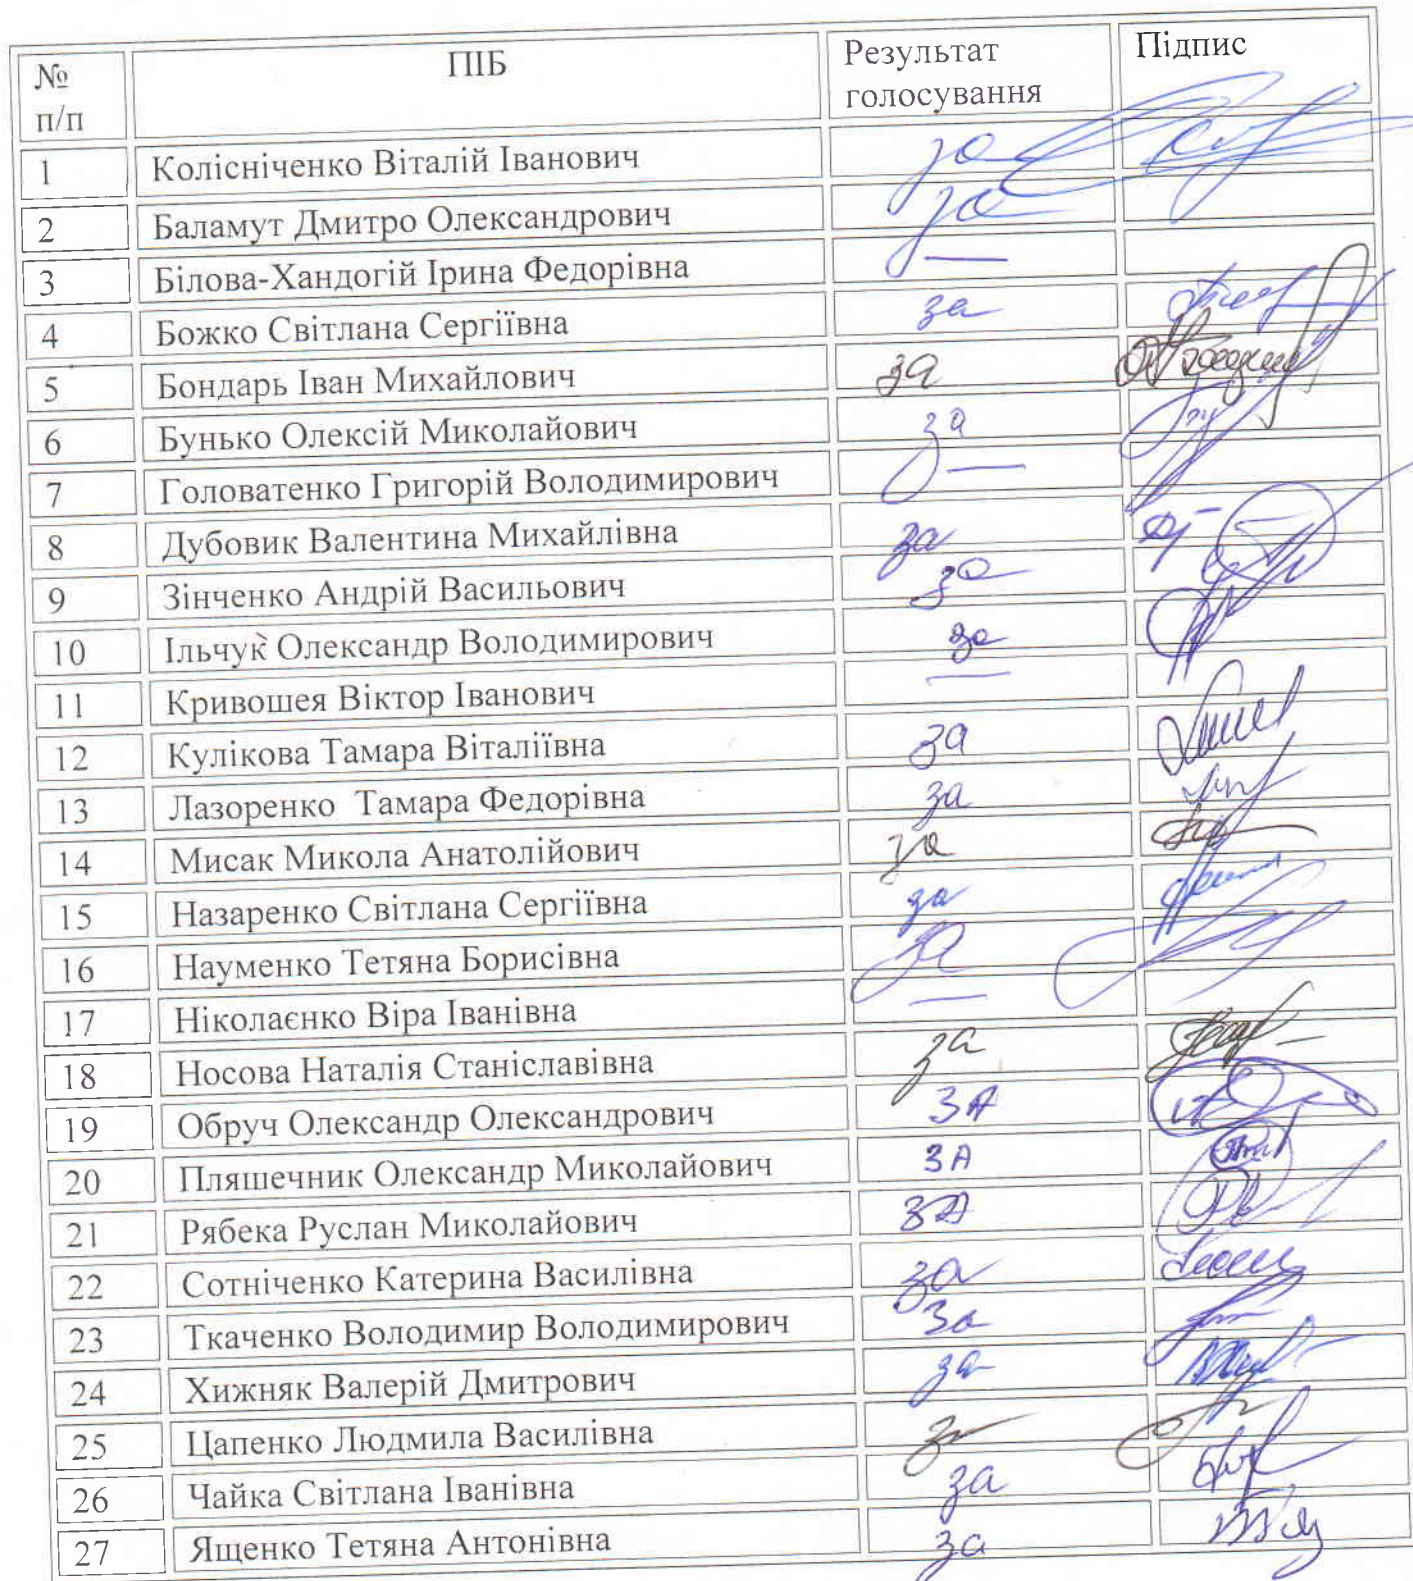 № п/п ПІБ Результат голосування Підпис
1 Колісніченко Віталій Іванович за
2 Баламут Дмитро Олександрович за
3 Білова-Хандогій Ірина Федорівна —
4 Божко Світлана Сергіївна за
5 Бондарь Іван Михайлович за
6 Бунько Олексій Миколайович за
7 Головатенко Григорій Володимирович —
8 Дубовик Валентина Михайлівна за
9 Зінченко Андрій Васильович за
10 Ільчук Олександр Володимирович за
11 Кривошея Віктор Іванович —
12 Кулікова Тамара Віталіївна за
13 Лазоренко Тамара Федорівна за
14 Мисак Микола Анатолійович за
15 Назаренко Світлана Сергіївна за
16 Науменко Тетяна Борисівна за
17 Ніколаєнко Віра Іванівна —
18 Носова Наталія Станіславівна за
19 Обруч Олександр Олександрович ЗА
20 Пляшечник Олександр Миколайович ЗА
21 Рябека Руслан Миколайович ЗА
22 Сотніченко Катерина Василівна за
23 Ткаченко Володимир Володимирович За
24 Хижняк Валерій Дмитрович за
25 Цапенко Людмила Василівна за
26 Чайка Світлана Іванівна за
27 Ященко Тетяна Антонівна за